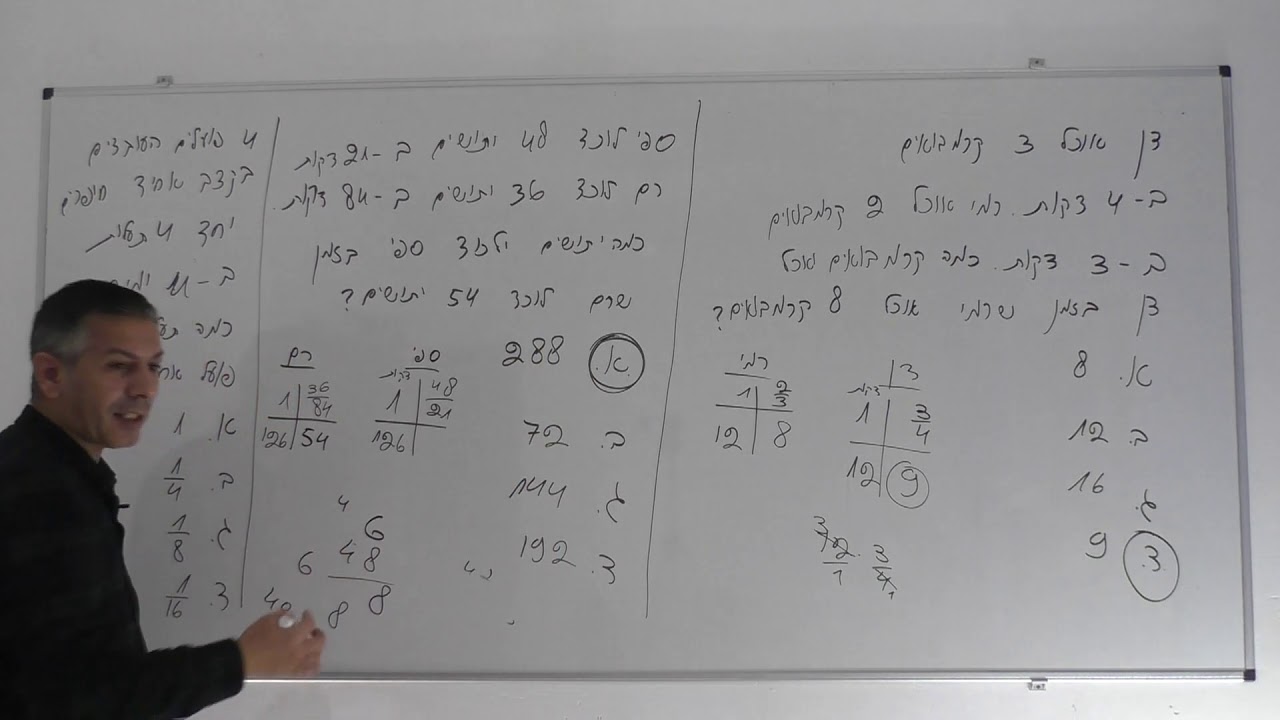 דן אוכל 3 קרמבואים
ב-4 דקות. רמי אוכל 2 קרמבואים
ב-3 דקות. כמה קרמבואים אוכל
דן בזמן שרמי אוכל 8 קרמבואים?
א. 8
ב. 12
ג. 16
ד. 9
דן
דקות
1 3/4
12 9
רמי
1 2/3
12 8
12/1 · 3/4
3 1
ספי לוכד 48 יתושים ב-21 דקות
רם לוכד 36 יתושים ב-84 דקות.
כמה יתושים ילכוד ספי בזמן
שרם לוכד 54 יתושים?
א. 288
ב. 72
ג. 144
ד. 192
ספי
דקות
1 48/21
126
רם
1 36/84
126 54
4
6
6 48
8 8
4 פועלים העובדים
בקצב אחיד חופרים
יחד 4 תעלות
ב-4
כמה
פועל
א. 1
ב. 1/4
ג. 1/8
ד. 1/16